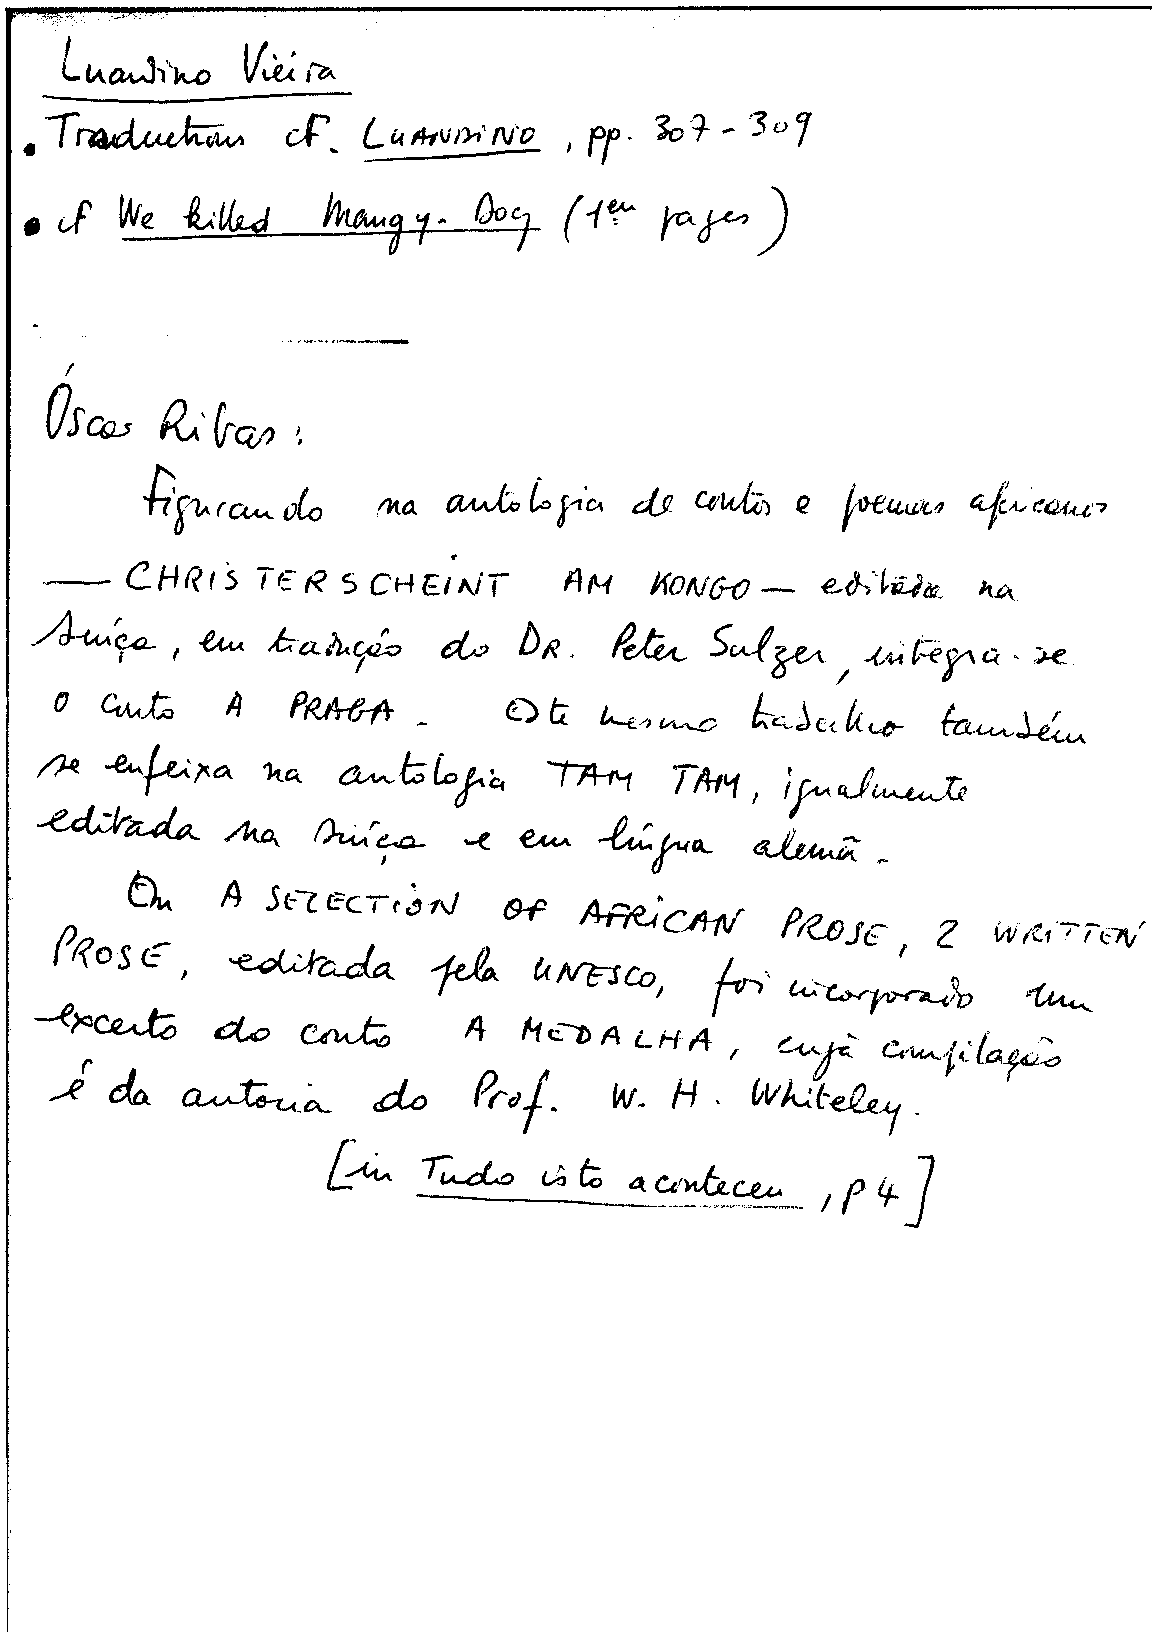 Luandino Vieira
• Traductions cf. LUANDINO, pp. 307-309
• cf We killed Mangy-Dog (1ères pages)
Óscar Ribas:
Figurando na antologia de contos e poemas africanos
— CHRIST ERSCHEINT AM KONGO — editada na
Suíça, em tradução do DR. Peter Sulzer, integra-se
o conto A PRAGA. Este mesmo trabalho também
se enfeixa na antologia TAM TAM, igualmente
editada na Suíça e em língua alemã.
Em A SELECTION OF AFRICAN PROSE, 2 WRITTEN
PROSE, editada pela UNESCO, foi incorporado um
excerto do conto A MEDALHA, cuja compilação
é da autoria do Prof. W. H. Whiteley.
[in Tudo isto aconteceu, p 4]